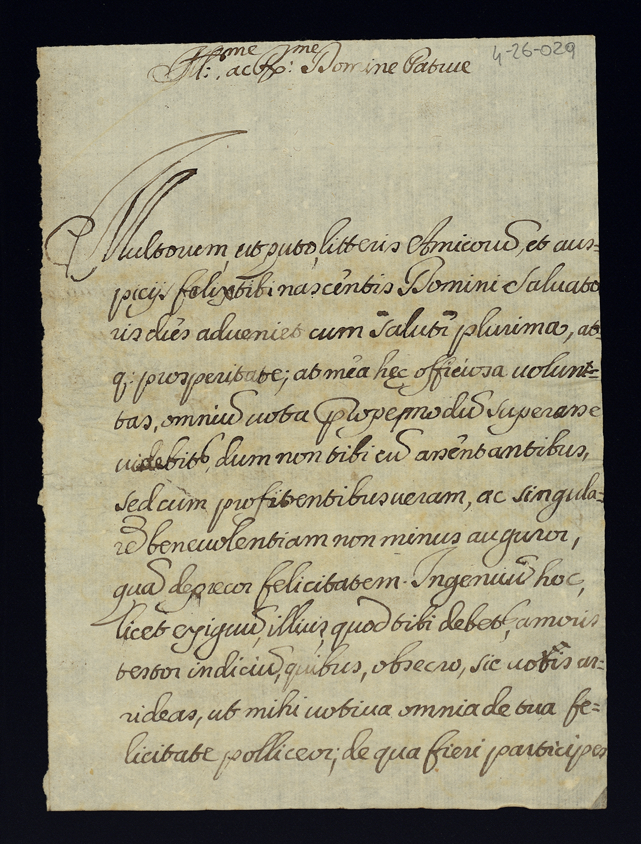 4-26-029
Ill:me, ac Rx:me Domine Patrue
Multorum, ut puto, litteris Amicorū, et aus=
picijs felix tibi nascentis Domini Saluato
ris dies adueniet cum salute plurima, at
q: prosperitate; at mea hęc officiosa uolun=
tas, omniū uota propemodū superasse
uidebit, dum non tibi cū assentantibus,
sed cum profitentibus ueram, ac singula=
rē beneuolentiam non minus auguror,
quā deprecor felicitatem. Ingeniū hoc,
licet exiguū, illius, quod tibi debet, amoris
testor indiciū, quibus, obsecro, sic uotis ar=
rideas, ut mihi uotiua omnia de tua fe=
licitate polliceor; de qua fieri particeps